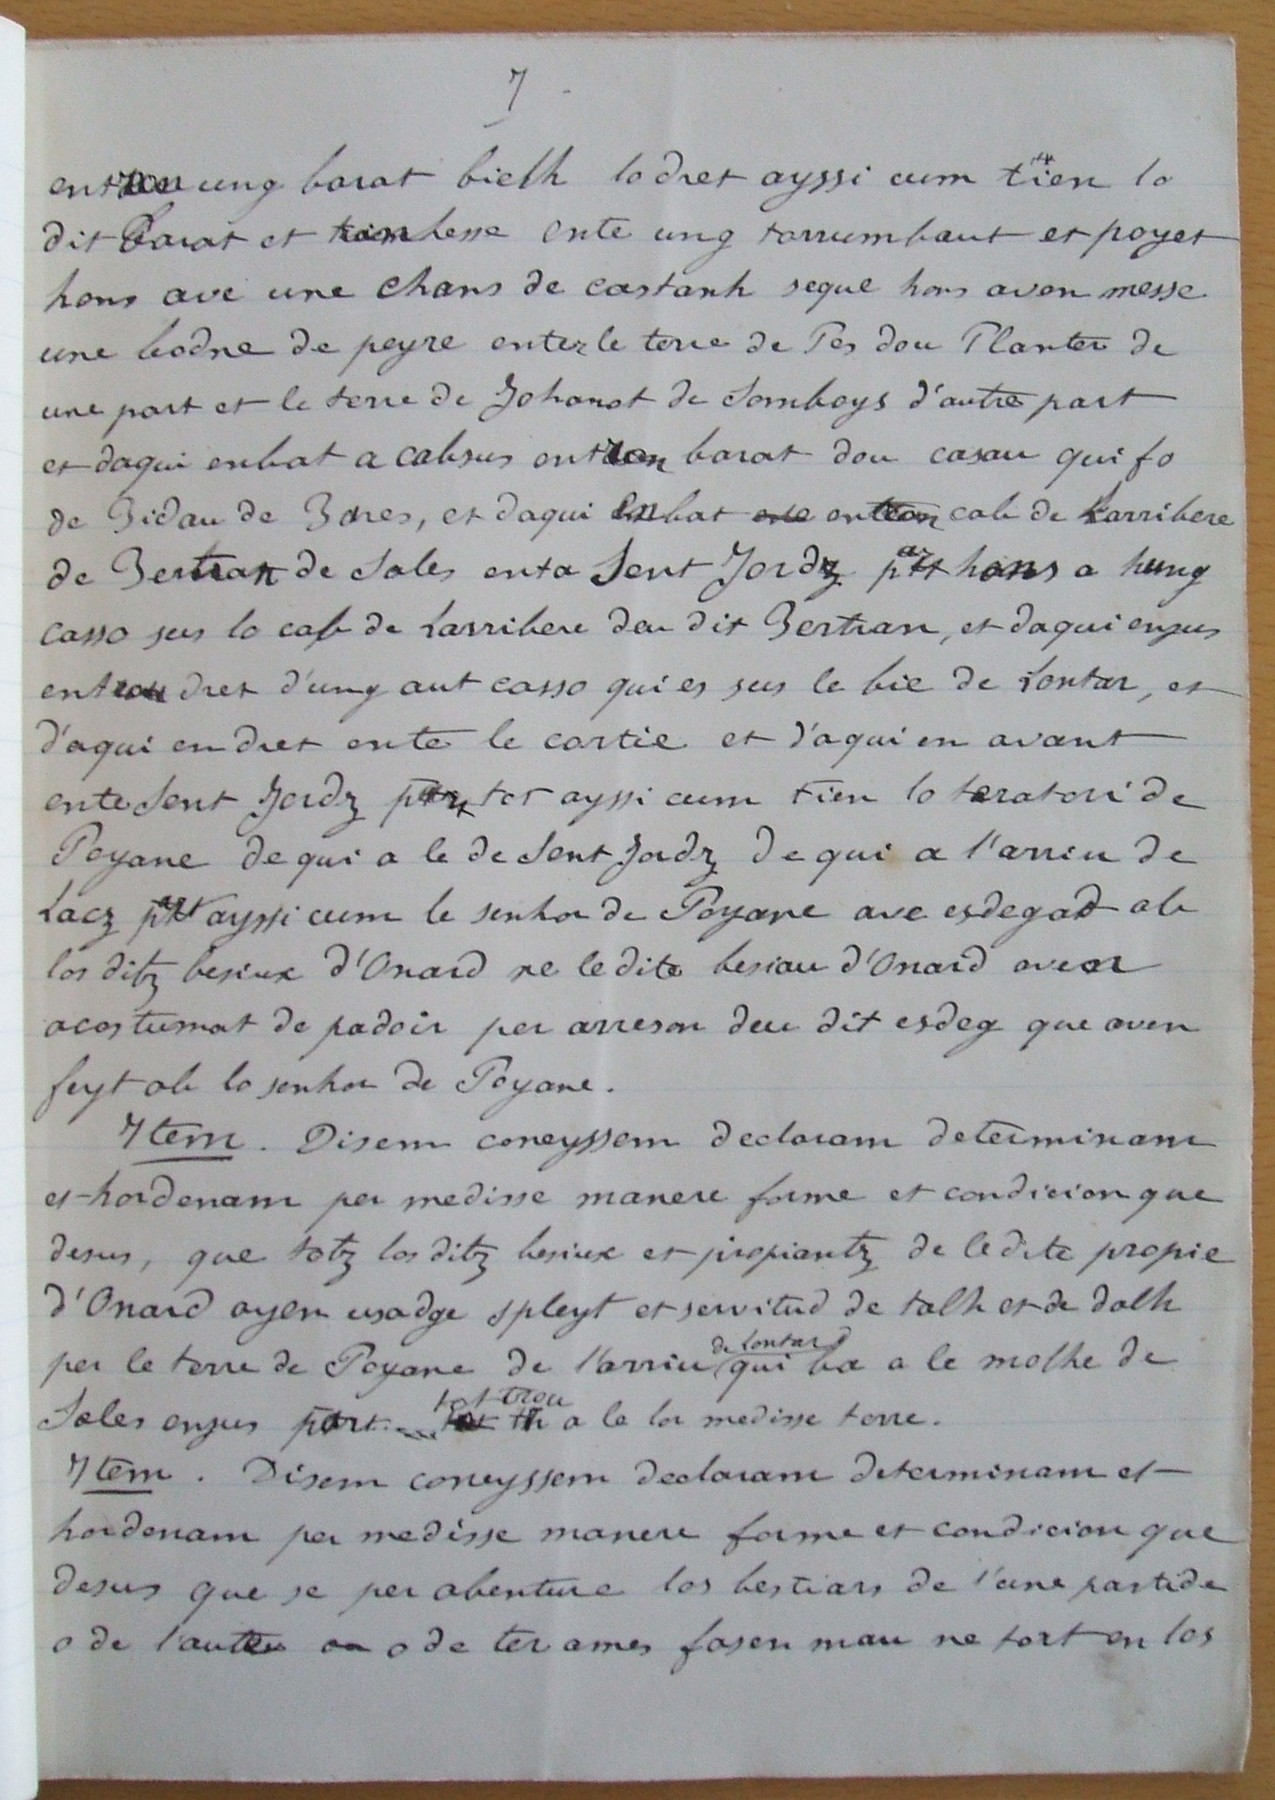 7
entrou ung barat bielh lo dret ayssi cum tien lo
dit barat et tombesse ente ung tarrumbaut et poyet
hons ave une chans de castanh seque hons aven messe
une bodne de peyre enter le terre de Pes dou Planter de
une part et le terre de Johanot de Somboys d'autre part
et daqui enbat a cabsus entrou barat dou casau qui fo
de Bidau de Bares, et daqui enbat entrou cab de Larribere
de Bertran de Sales enta Sent Jordz hons a hung
casso sus lo cab de Larribere deu dit Bertran, et daqui enjus
entrou dret d'ung aut casso qui es sus le bie de Lontar, et
d'aqui en dret ente le cartie et d'aqui en avant
ente Sent Jordz tot ayssi cum tien lo teratori de
Poyane de qui a le de Sent Jordz de qui a l'arriu de
Lacz ayssi cum le senhor de Poyane ave esdegad ab
los ditz besiux d'Onard ne ledite besiau d'Onard aven
acostumat de padoir per arreson deu dit esdeg que aven
feyt ab lo senhor de Poyane.
Item. Disem coneyssem declaram determinam
et hordenam per medisse manere forme et condicion que
desus, que totz los ditz besiux et propiantz de ledite propie
d'Onard ayen usadge spleyt et servitud de talh et de dalh
per le terre de Poyane de l'arriu de Lontard qui ba a le molhe de
Sales enjus part tot trou a le lor medisse terre.
Item. Disem coneyssem declaram determinam et
hordenam per medisse manere forme et condicion que
desus que se per abenture los bestiars de l'une partide
o de l'autre o de ter ames fasen mau ne tort en los